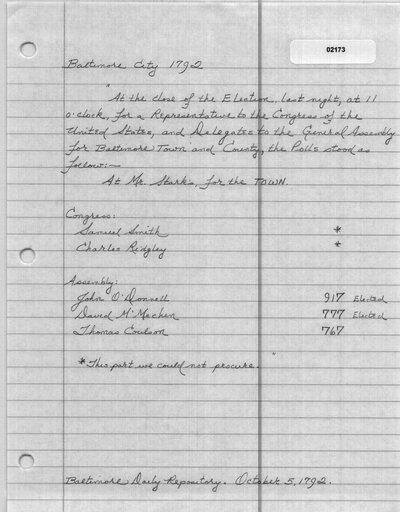 02173
Baltimore City 1792
"At the close of the Election, last night, at 11
o'clock, for a Representative to the Congress of the
United States, and Delegates to the General Assembly
for Baltimore Town and County, the Polls stood as
follow:—
At Mr. Stark's, for the TOWN.
Congress:
Samuel Smith *
Charles Ridgley *
Assembly:
John O'Donnell 917 Elected
David M'Mechen 777 Elected
Thomas Coulson 767
*This part we could not procure. "
Baltimore Daily Repository. October 5, 1792.